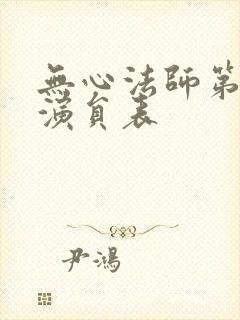 無心法師第
演員表
尹鴻